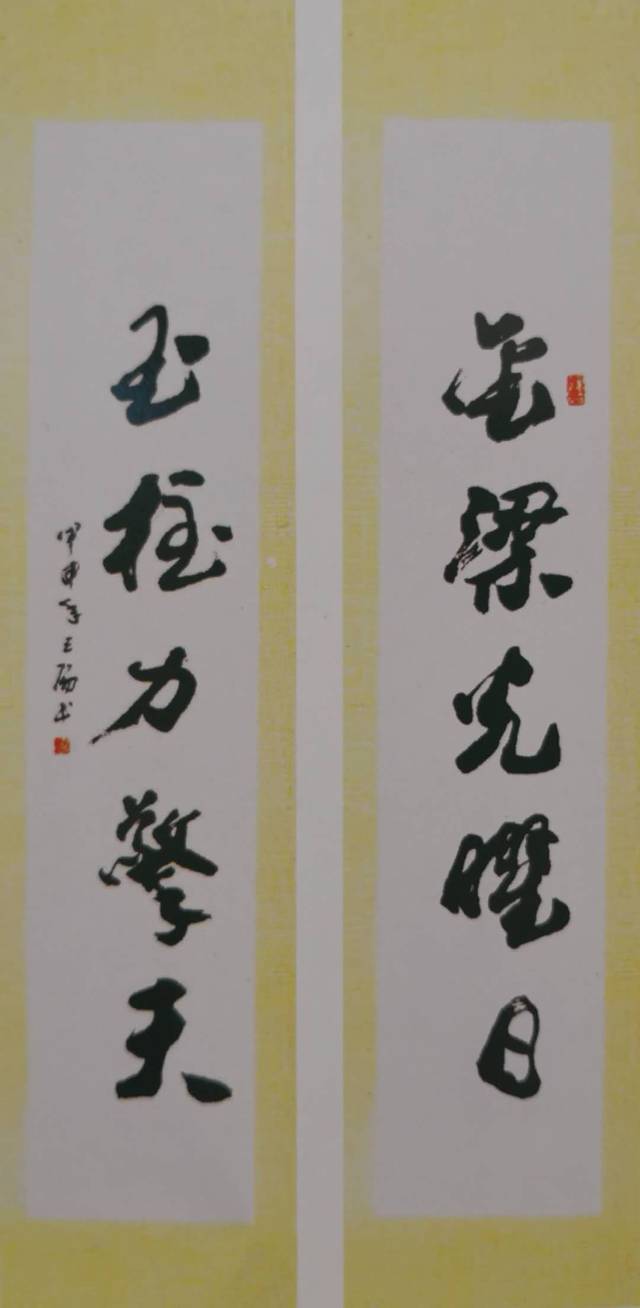 金梁光曜日
玉柱力擎天
甲申年王